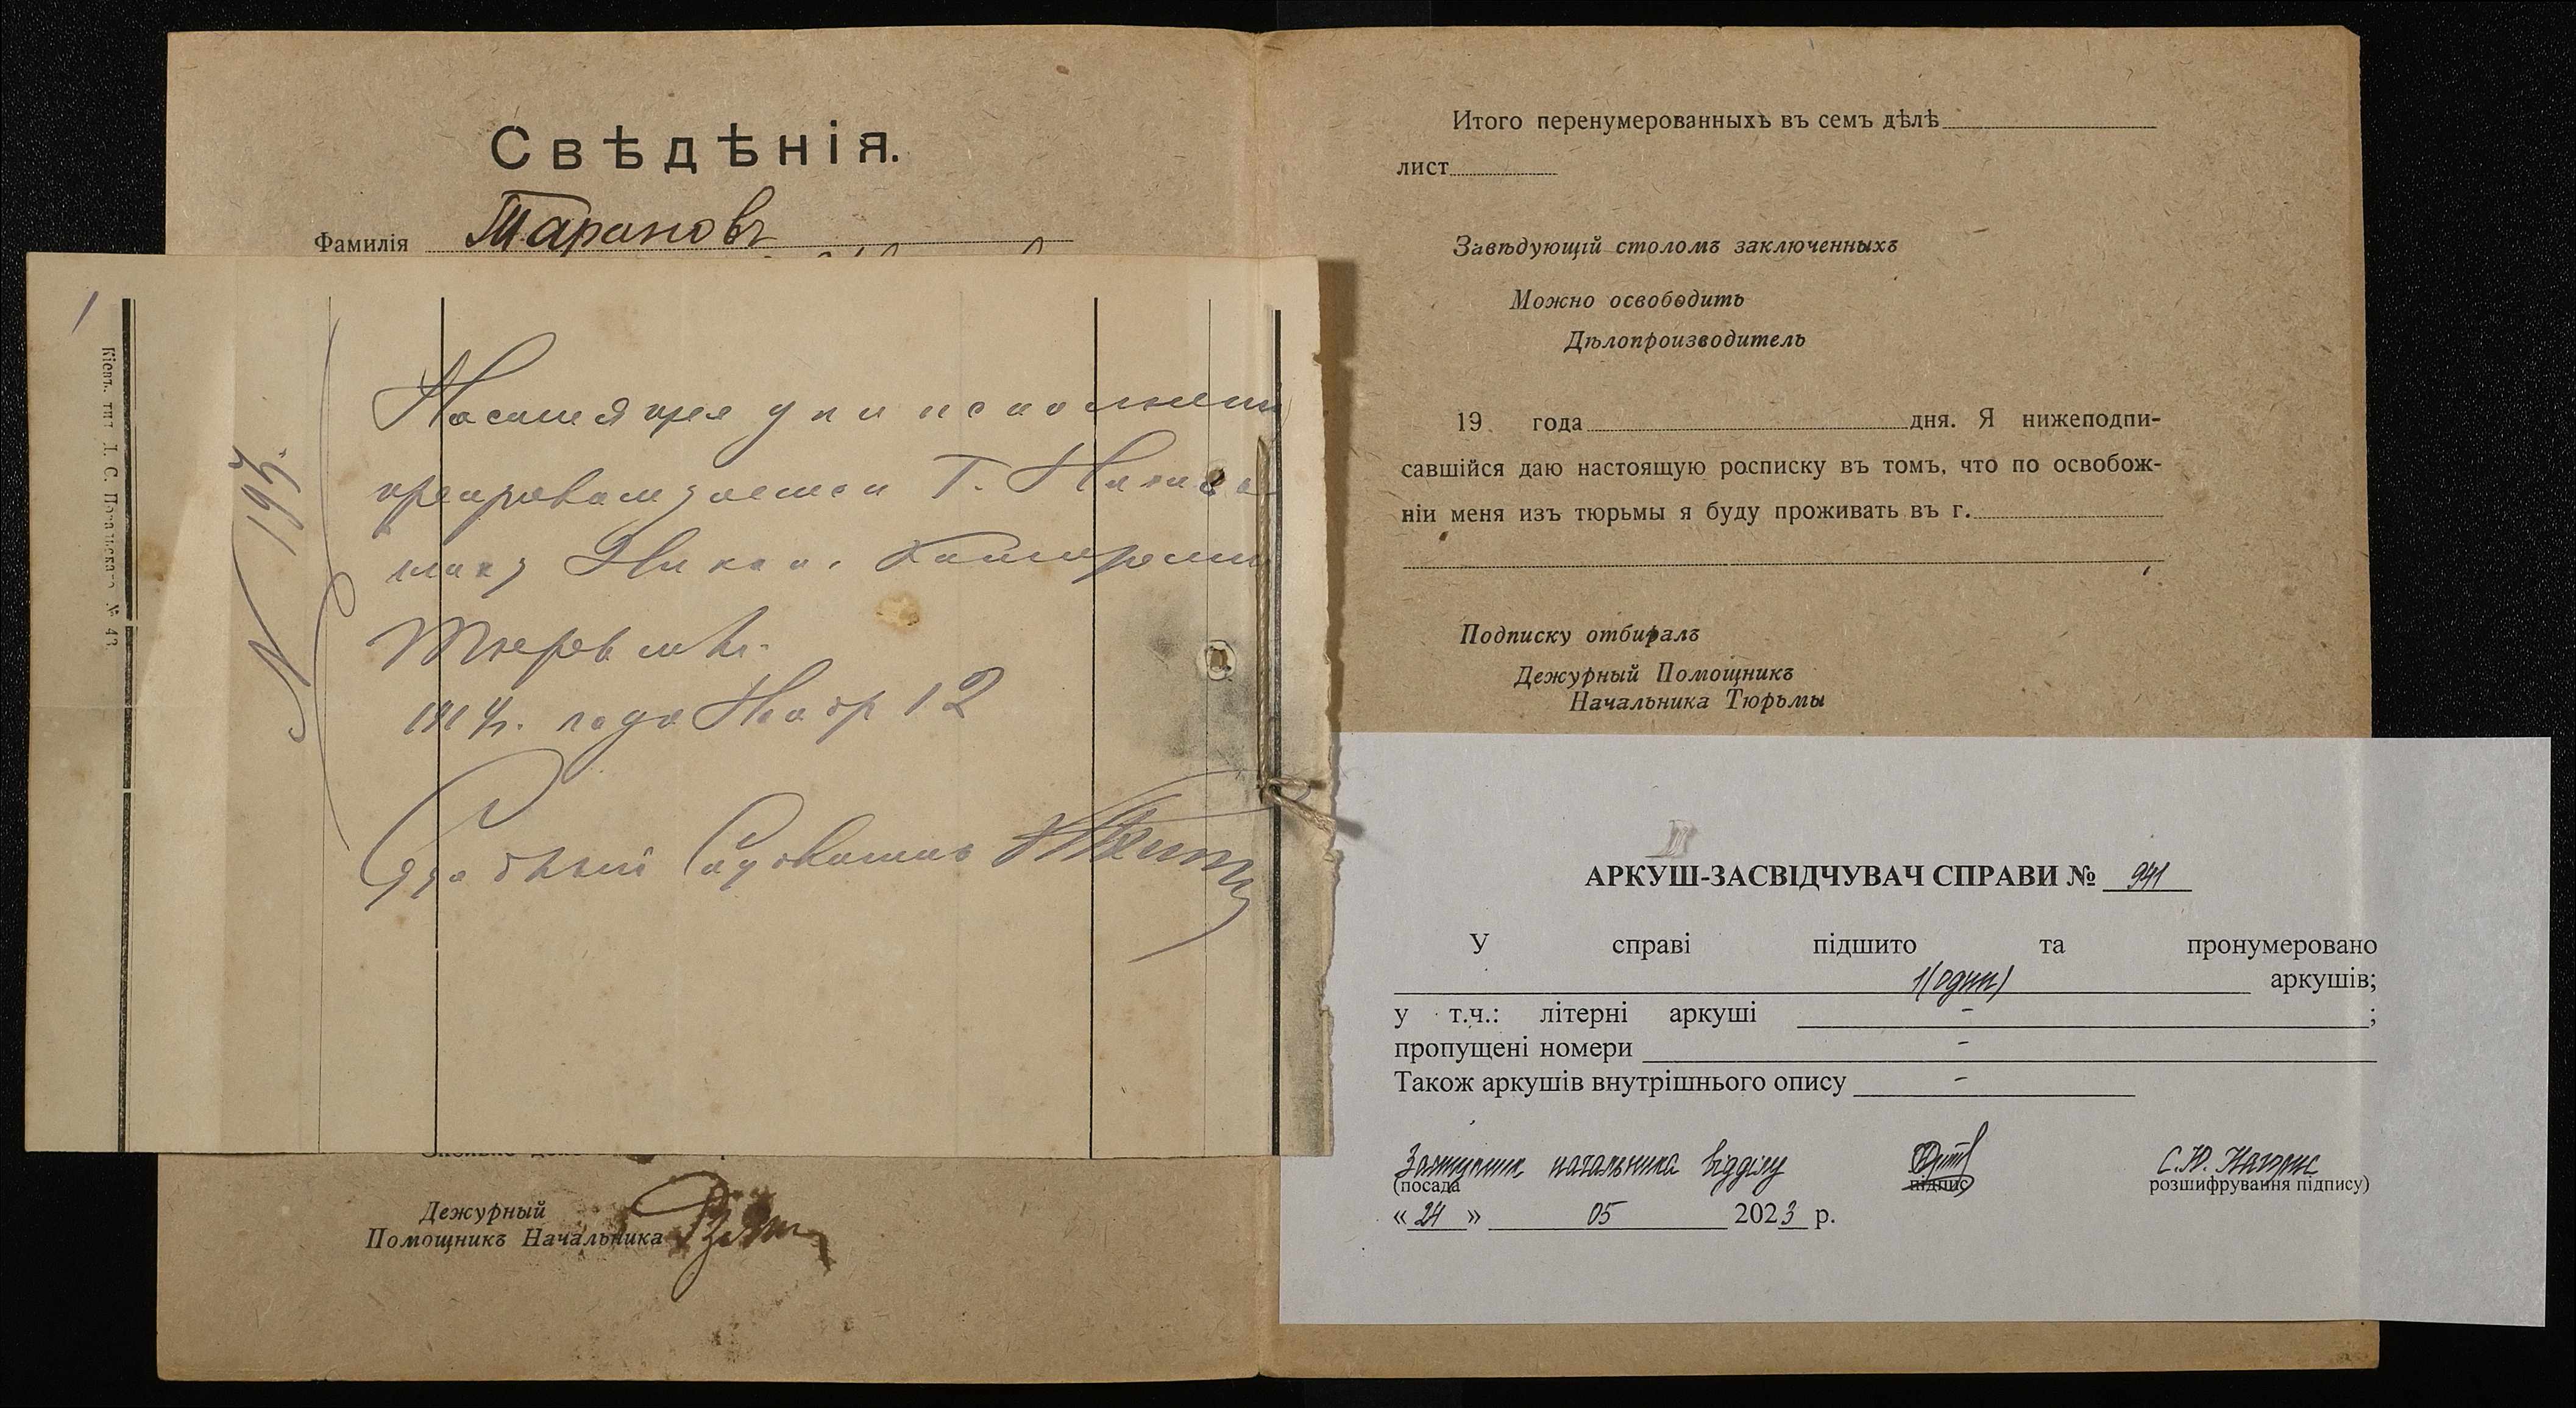 Свѣдѣнія.
Фамилія Тарановъ
1
Кіевъ. тип.
№ 43
N 193.
Настоящая для исполненія
препровождается Г. Началь-
нику Никол. Каторжной
Тюрьмы.
1914 г. года Ноябр 12
Судебный Слѣдователь
Дежурный
Помощникъ Начальника
Итого перенумерованныхъ въ семъ дѣлѣ
лист
Завѣдующій столомъ заключенныхъ
Можно освободить
Дѣлопроизводитель
19 года дня. Я нижеподпи-
савшійся даю настоящую росписку въ томъ, что по освобож-
ніи меня изъ тюрьмы я буду проживать въ г.
Подписку отбиралъ
Дежурный Помощникъ
Начальника Тюрьмы
АРКУШ-ЗАСВІДЧУВАЧ СПРАВИ № 941
У справі підшито та пронумеровано
1(один) аркушів;
у т.ч.: літерні аркуші - ;
пропущені номери -
Також аркушів внутрішнього опису -
Заступник начальника відділу С.Ю.
(посада підпис розшифрування підпису)
« 24 » 05 2023 р.